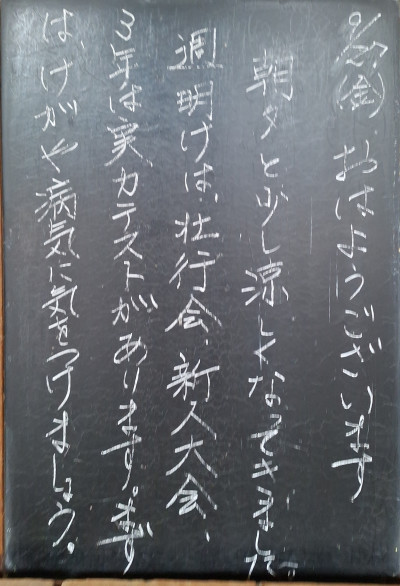 9/22(金) おはようございます
朝夕と少し涼しくなってきました
週明けは、壮行会、新人大会、
3年は実力テストがあります。まず
は、けがや病気に気をつけましょう。